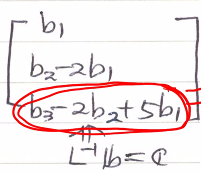 b₁
b₂-2b₁
b₃-2b₂+5b₁
L⁻¹b=c